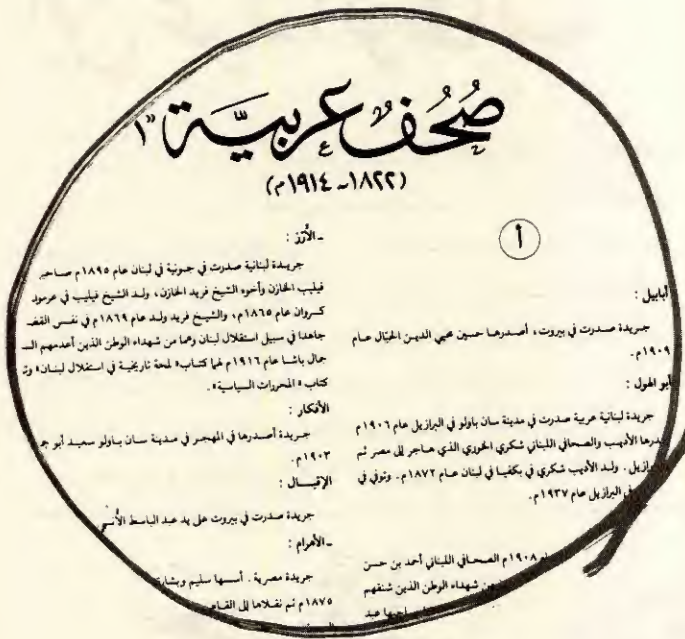 صُحُف عربيّة "١
(١٨٢٢-١٩١٤م)
أ
أبابيل :
جريدة صدرت في بيروت، أصدرها حسين محيي الدين الحبّال عام
١٩٠٩م.
أبو الهول :
جريدة لبنانية عربية صدرت في مدينة سان باولو في البرازيل عام ١٩٠٦م
الأديب والصحافي اللبناني شكري الخوري الذي هاجر إلى مصر ثم
ولد الأديب شكري في بكفيا في لبنان عام ١٨٧٢م. وتوفي في
في البرازيل عام ١٩٣٧م.
١٩٠٨م الصحافي اللبناني أحمد بن حسن
من شهداء الوطن الذين شنقهم
عبد
-الأرز :
جريدة لبنانية صدرت في جونية في لبنان عام ١٨٩٥م
فيليب الخازن وأخوه الشيخ فريد الخازن، ولد الشيخ فيليب في عرمون
كسروان عام ١٨٦٥م، والشيخ فريد ولد عام ١٨٦٩م في نفس
جاهدا في سبيل استقلال لبنان وهما من شهداء الوطن الذين أعدمهم
جمال باشا عام ١٩١٦م لهما كتاب «لمحة تاريخية في استقلال لبنان»
كتاب «المحررات السياسية».
الأفكار :
جريدة أصدرها في المهجر في مدينة سان باولو سعيد أبو
١٩٠٣م.
الإقبـال :
جريدة صدرت في بيروت على يد عبد الباسط
-الأهرام :
جريدة مصرية. أسسها سليم وبشارة
١٨٧٥م ثم نقلاها إلى